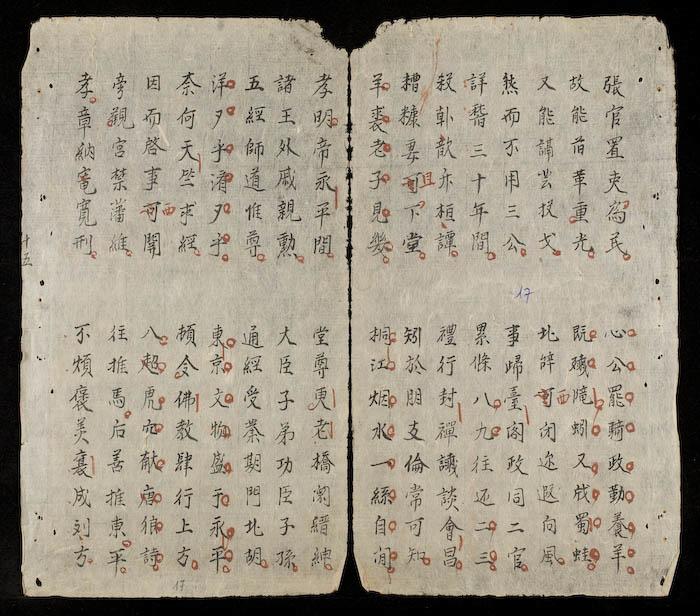 張官置吏為民 心公罷騎政勤養羊
故能前華重光 既殲隴蚓又戕蜀蛙
又能講芸投戈 北辞可闭迩遐向風
西
然而不用三公 事歸臺阁政同二官
詳 三十年間 累條八九往还二三
殺韩歆 桓譚 禮行封禪讖談會昌
糟糠妻可下堂 矧於朋友倫常可知
且
羊裘老子見幾 桐江烟水一絲自閒
17
孝明帝永平間 堂尊更老橋圜縉紳
諸王外戚親勲 大臣子弟功臣子孫
五經師道惟尊 通經受業期門北胡
洋夕乎 夕乎 東京文物盛于永平
奈何天竺求經 頓令佛教肆行上方
因而啓事可開 八 虎 献唐狼詩
西
旁觀宮禁藩維 往推馬后善推東平
孝章納 寬刑 不煩褒美 成列方
十五
17